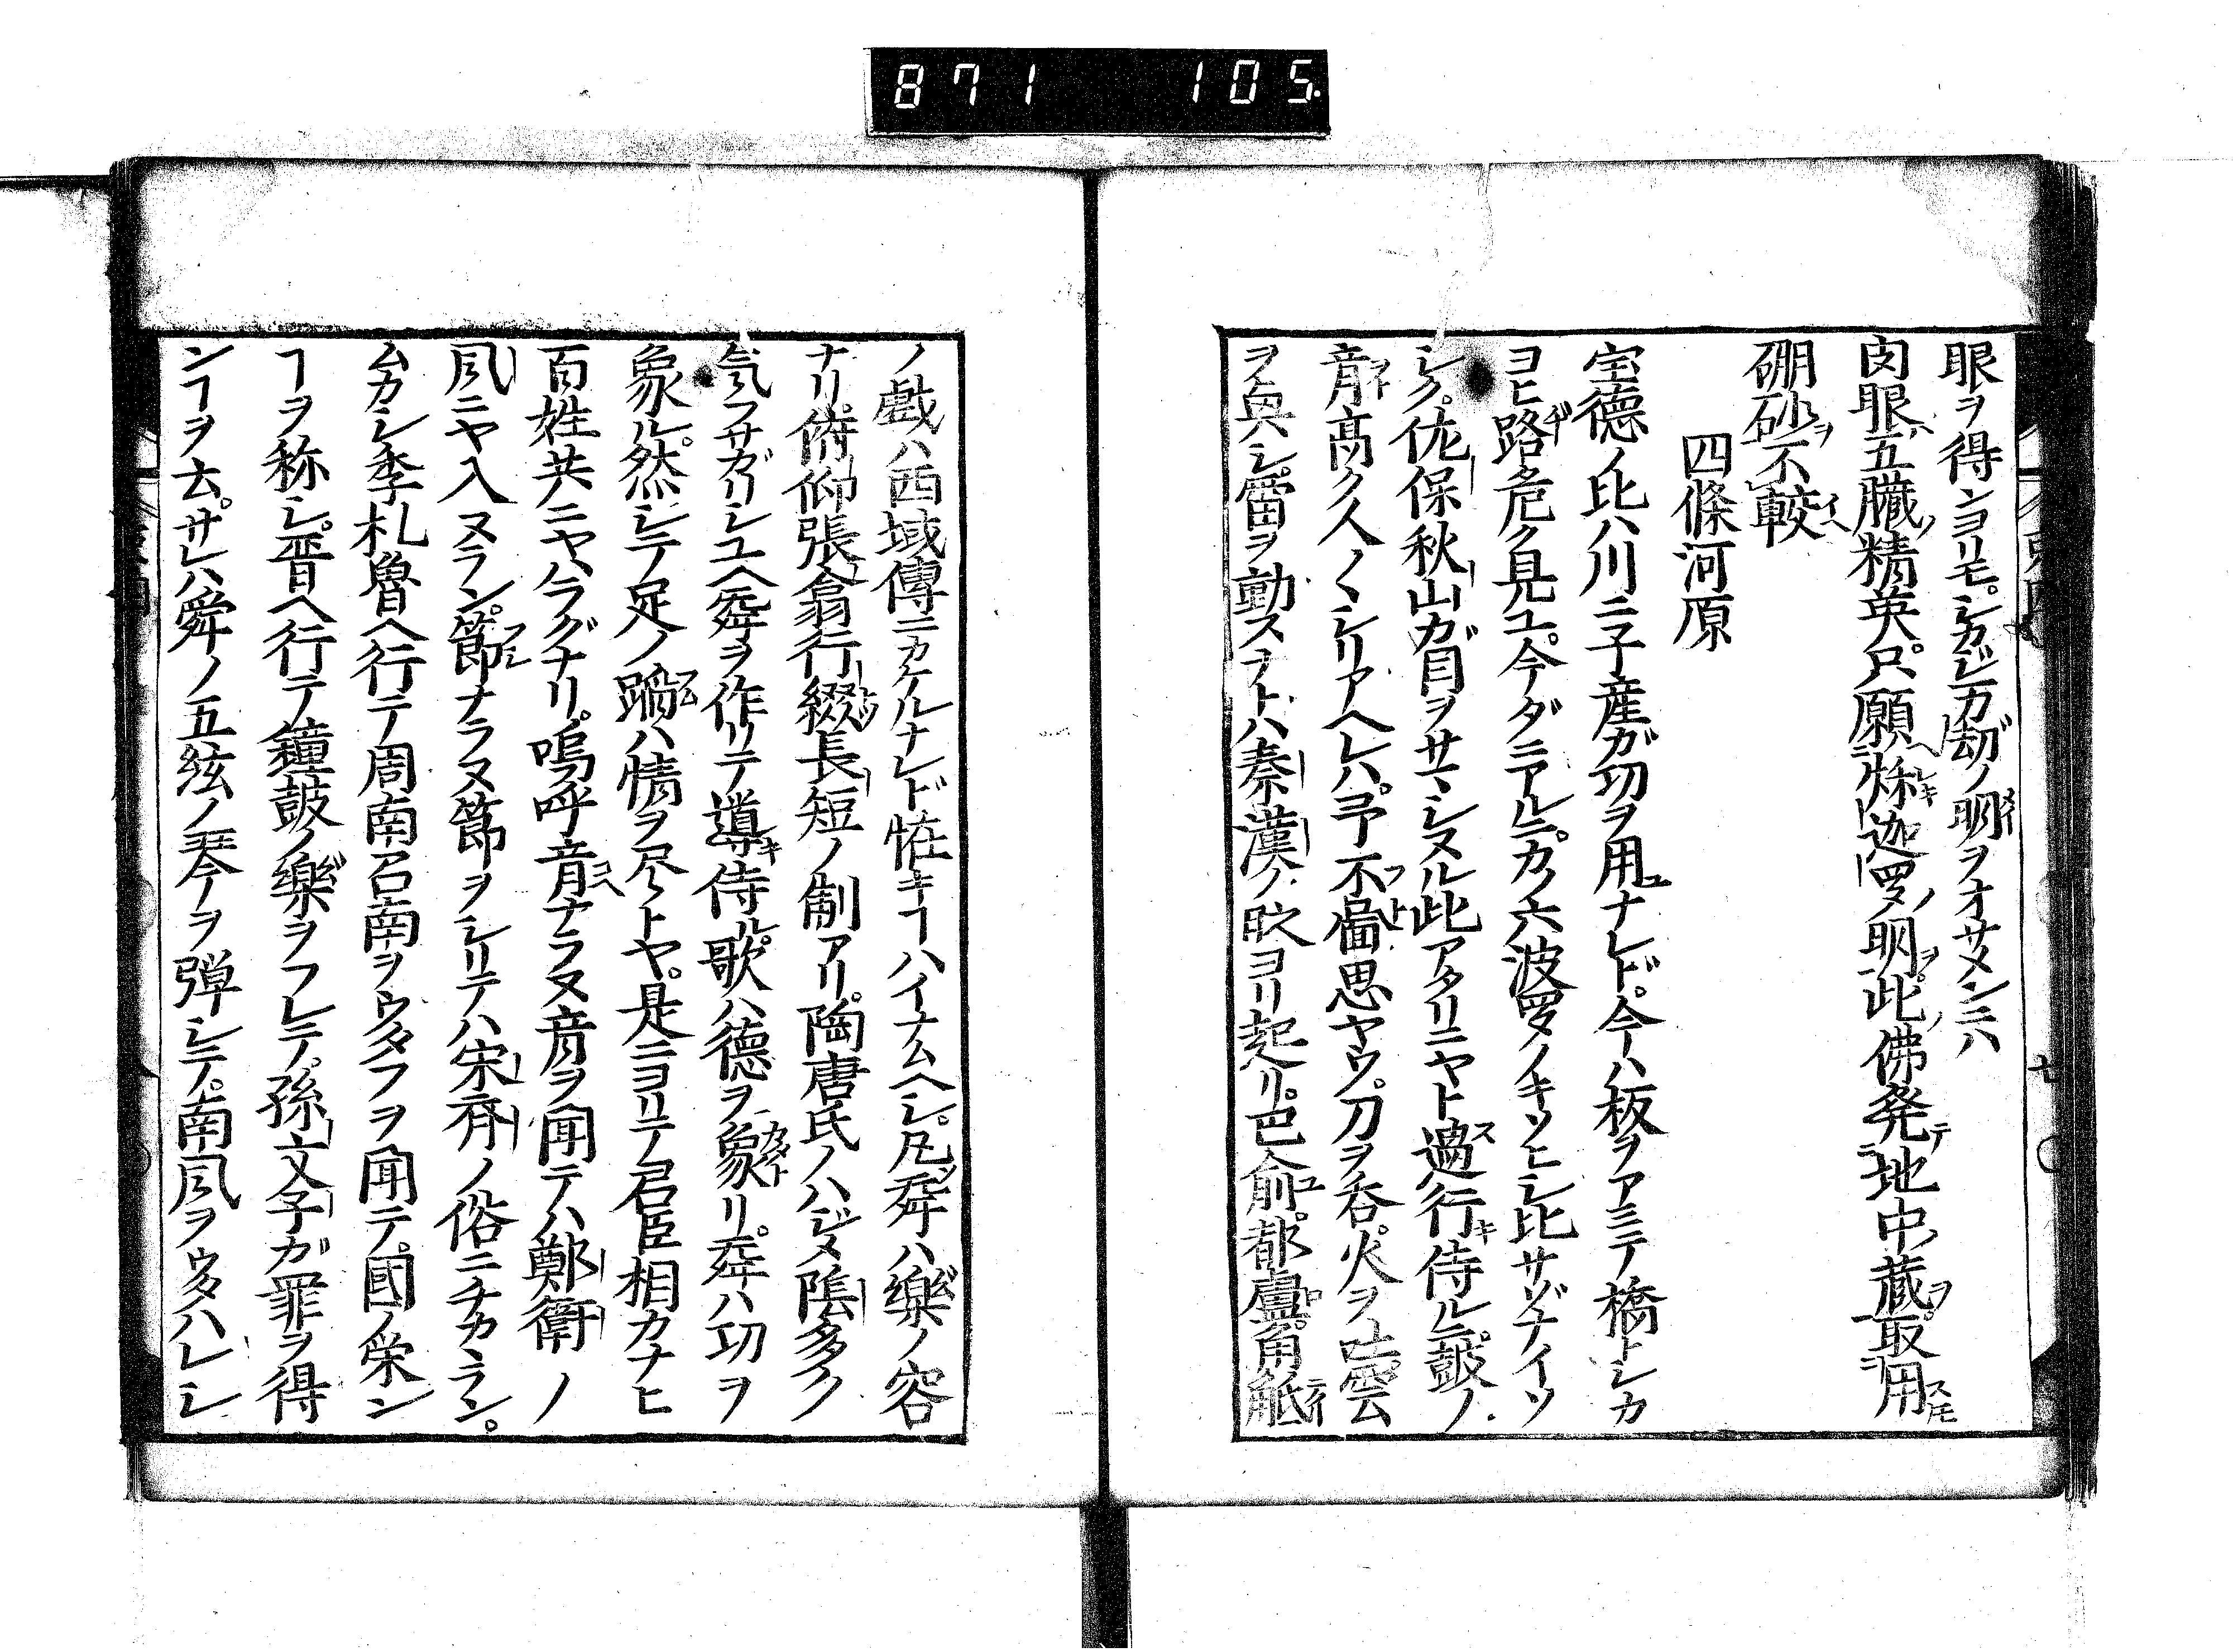 871 105
眼ヲ得ンヨリモ。シカジ一カ劫ノ明ヲオサメンニハ
肉眼五臓精英只。願秌迦羅ノ明。此佛発地中蔵取用
硼砂不較
四條河原
宝德ノ比ハ川ニ子産ガ切ヲ用ナレド。今ハ板ヲアミテ橋トシカ
ヨヒ路危ク見ユ。今ダニアルニ。カノ六波羅ノキソヒシ比サゾナイツ
シク。佐保秋山ガ目ヲサマシヌル此アタリニヤト過行侍ルニ。鼓ノ
音高ク人〳〵シリアヘレハ。予不圖思ヤウ。刀ヲ呑。火ヲ吐雲
ヲ興シ。雷ヲ動スナトハ秦漢ノ比ヨリ起リ。巴俞。都盧。角觝
ノ戯ハ西域傳ニカケルナレド恠キヿハイナムヘシ。凡舞ハ樂ノ容
ナリ。俯仰張翕行綴長短ノ制アリ。陶唐氏ノハジメ陰多ク
気フサガリシユヘ舞ヲ作リテ導侍ル。歌ハ德ヲ象リ。舞ハ功ヲ
象ル。然シテ足ノ蹈ハ情ヲ尽ストヤ。是ニヨリテ君臣相カナヒ
百姓共ニヤハラグナリ。嗚呼音ナラヌ音ヲ聞テハ鄭衛ノ
風ニヤ入ヌラン。節ナラヌ節ヲシリテハ宋齊ノ俗ニチカヽラン。
ムカシ季札魯ヘ行テ周南召南ヲウタフヲ聞テ。國ノ栄ン
ヿヲ称シ。晋ヘ行テ鐘鼓ノ樂ヲフレテ。孫文子ガ罪ヲ得
ンヿヲ云。サレハ舜ノ五絃ノ琴ヲ弾シテ。南風ヲウタハレシ